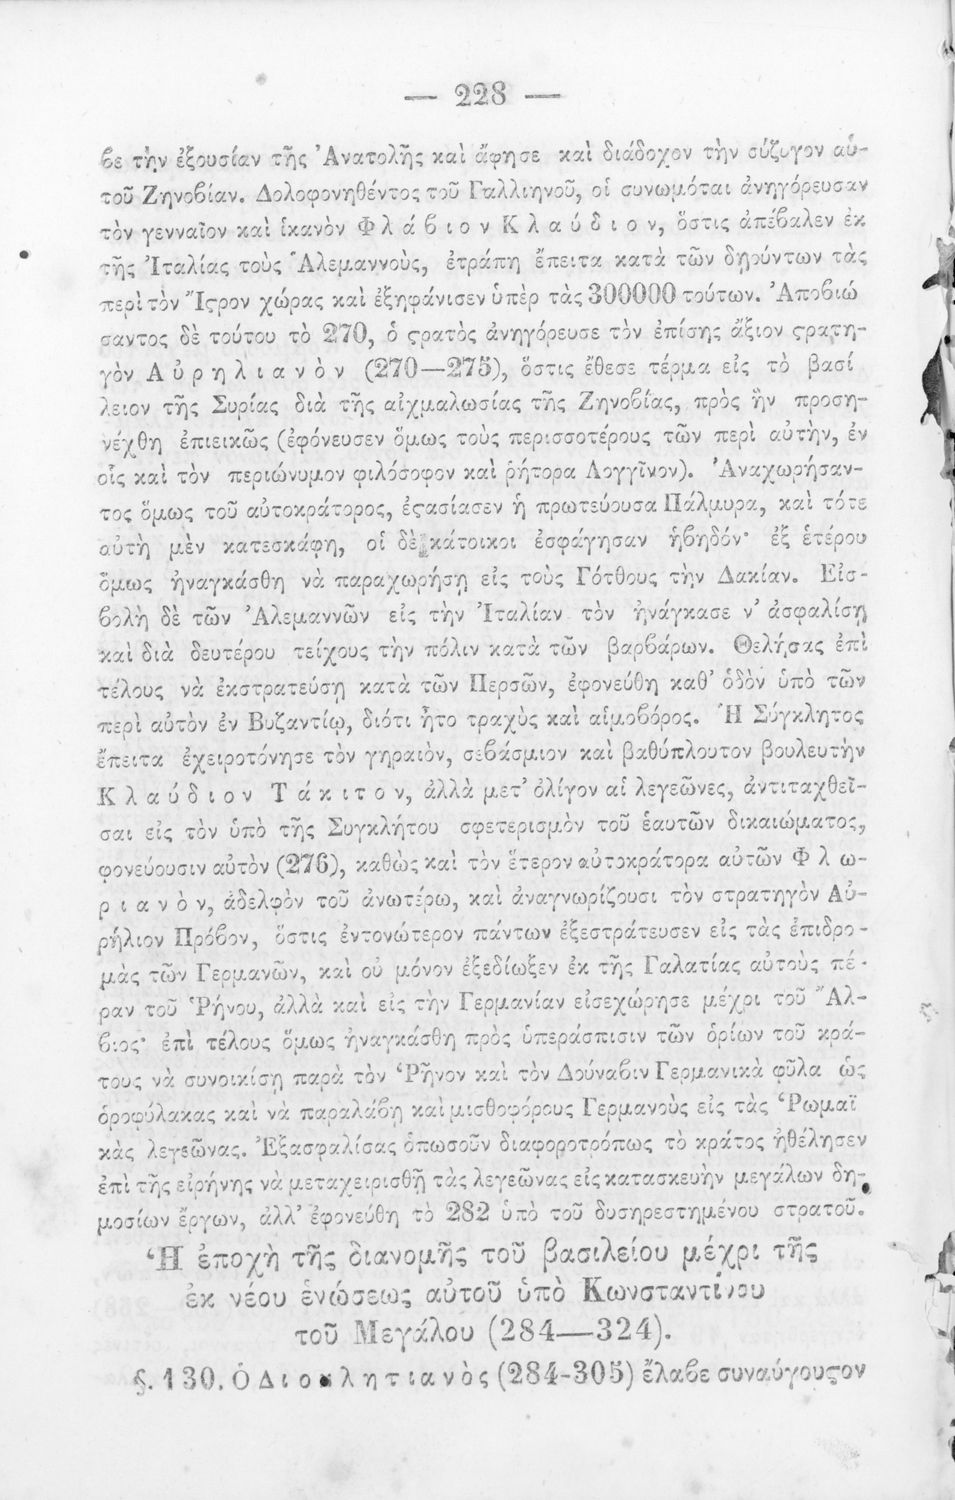 — 228 —
βε τὴν ἐξουσίαν τῆς Ἀνατολῆς καὶ ἄφησε καὶ διάδοχον τὴν σύζυγον αὑ-
τοῦ Ζηνοβίαν. Δολοφονηθέντος τοῦ Γαλλιηνοῦ, οἱ συνωμόται ἀνηγόρευσαν
τὸν γενναῖον καὶ ἱκανὸν Φλάβιον Κλαύδιον, ὅστις ἀπέβαλεν ἐκ
τῆς Ἰταλίας τοὺς Ἀλεμαννοὺς, ἐτράπη ἔπειτα κατὰ τῶν δῃούντων τὰς
περὶ τὸν Ἴϛρον χώρας καὶ ἐξηφάνισεν ὑπὲρ τὰς 300000 τούτων. Ἀποβιώ
σαντος δὲ τούτου τὸ 270, ὁ ϛρατὸς ἀνηγόρευσε τὸν ἐπίσης ἄξιον ϛρατη-
γὸν Αὐρηλιανὸν (270—275), ὅστις ἔθεσε τέρμα εἰς τὸ βασί
λειον τῆς Συρίας διὰ τῆς αἰχμαλωσίας τῆς Ζηνοβίας, πρὸς ἣν προση-
νέχθη ἐπιεικῶς (ἐφόνευσεν ὅμως τοὺς περισσοτέρους τῶν περὶ αὐτὴν, ἐν
οἷς καὶ τὸν περιώνυμον φιλόσοφον καὶ ῥήτορα Λογγῖνον). Ἀναχωρήσαν-
τος ὅμως τοῦ αὐτοκράτορος, ἐϛασίασεν ἡ πρωτεύουσα Πάλμυρα, καὶ τότε
αὐτὴ μὲν κατεσκάφη, οἱ δὲ κάτοικοι ἐσφάγησαν ἡβηδόν· ἐξ ἑτέρου
ὅμως ἠναγκάσθη νὰ παραχωρήσῃ εἰς τοὺς Γότθους τὴν Δακίαν. Εἰσ-
βολὴ δὲ τῶν Ἀλεμαννῶν εἰς τὴν Ἰταλίαν τὸν ἠνάγκασε ν' ἀσφαλίσῃ
καὶ διὰ δευτέρου τείχους τὴν πόλιν κατὰ τῶν βαρβάρων. Θελήσας ἐπὶ
τέλους νὰ ἐκστρατεύσῃ κατὰ τῶν Περσῶν, ἐφονεύθη καθ' ὁδὸν ὑπὸ τῶν
περὶ αὐτὸν ἐν Βυζαντίῳ, διότι ἦτο τραχὺς καὶ αἱμοβόρος. Ἡ Σύγκλητος
ἔπειτα ἐχειροτόνησε τὸν γηραιὸν, σεβάσμιον καὶ βαθύπλουτον βουλευτὴν
Κλαύδιον Τάκιτον, ἀλλὰ μετ' ὀλίγον αἱ λεγεῶνες, ἀντιταχθεῖ-
σαι εἰς τὸν ὑπὸ τῆς Συγκλήτου σφετερισμὸν τοῦ ἑαυτῶν δικαιώματος,
φονεύουσιν αὐτὸν (276), καθὼς καὶ τὸν ἕτερον αὐτοκράτορα αὐτῶν Φλω-
ριανὸν, ἀδελφὸν τοῦ ἀνωτέρω, καὶ ἀναγνωρίζουσι τὸν στρατηγὸν Αὐ-
ρήλιον Πρόβον, ὅστις ἐντονώτερον πάντων ἐξεστράτευσεν εἰς τὰς ἐπιδρο-
μὰς τῶν Γερμανῶν, καὶ οὐ μόνον ἐξεδίωξεν ἐκ τῆς Γαλατίας αὐτοὺς πέ-
ραν τοῦ Ῥήνου, ἀλλὰ καὶ εἰς τὴν Γερμανίαν εἰσεχώρησε μέχρι τοῦ Ἄλ-
βιος· ἐπὶ τέλους ὅμως ἠναγκάσθη πρὸς ὑπεράσπισιν τῶν ὁρίων τοῦ κρά-
τους νὰ συνοικίσῃ παρὰ τὸν Ῥῆνον καὶ τὸν Δούναβιν Γερμανικὰ φῦλα ὡς
ὁροφύλακας καὶ νὰ παραλάβῃ καὶ μισθοφόρους Γερμανοὺς εἰς τὰς Ῥωμαϊ
κὰς λεγεῶνας. Ἐξασφαλίσας ὁπωσοῦν διαφοροτρόπως τὸ κράτος ἠθέλησεν
ἐπὶ τῆς εἰρήνης νὰ μεταχειρισθῇ τὰς λεγεῶνας εἰς κατασκευὴν μεγάλων δη-
μοσίων ἔργων, ἀλλ' ἐφονεύθη τὸ 282 ὑπὸ τοῦ δυσηρεστημένου στρατοῦ.
Ἡ ἐποχὴ τῆς διανομῆς τοῦ βασιλείου μέχρι τῆς
ἐκ νέου ἑνώσεως αὐτοῦ ὑπὸ Κωνσταντίνου
τοῦ Μεγάλου (284—324).
§. 130. Ὁ Διοκλητιανὸς (284-305) ἔλαβε συναύγουϛον